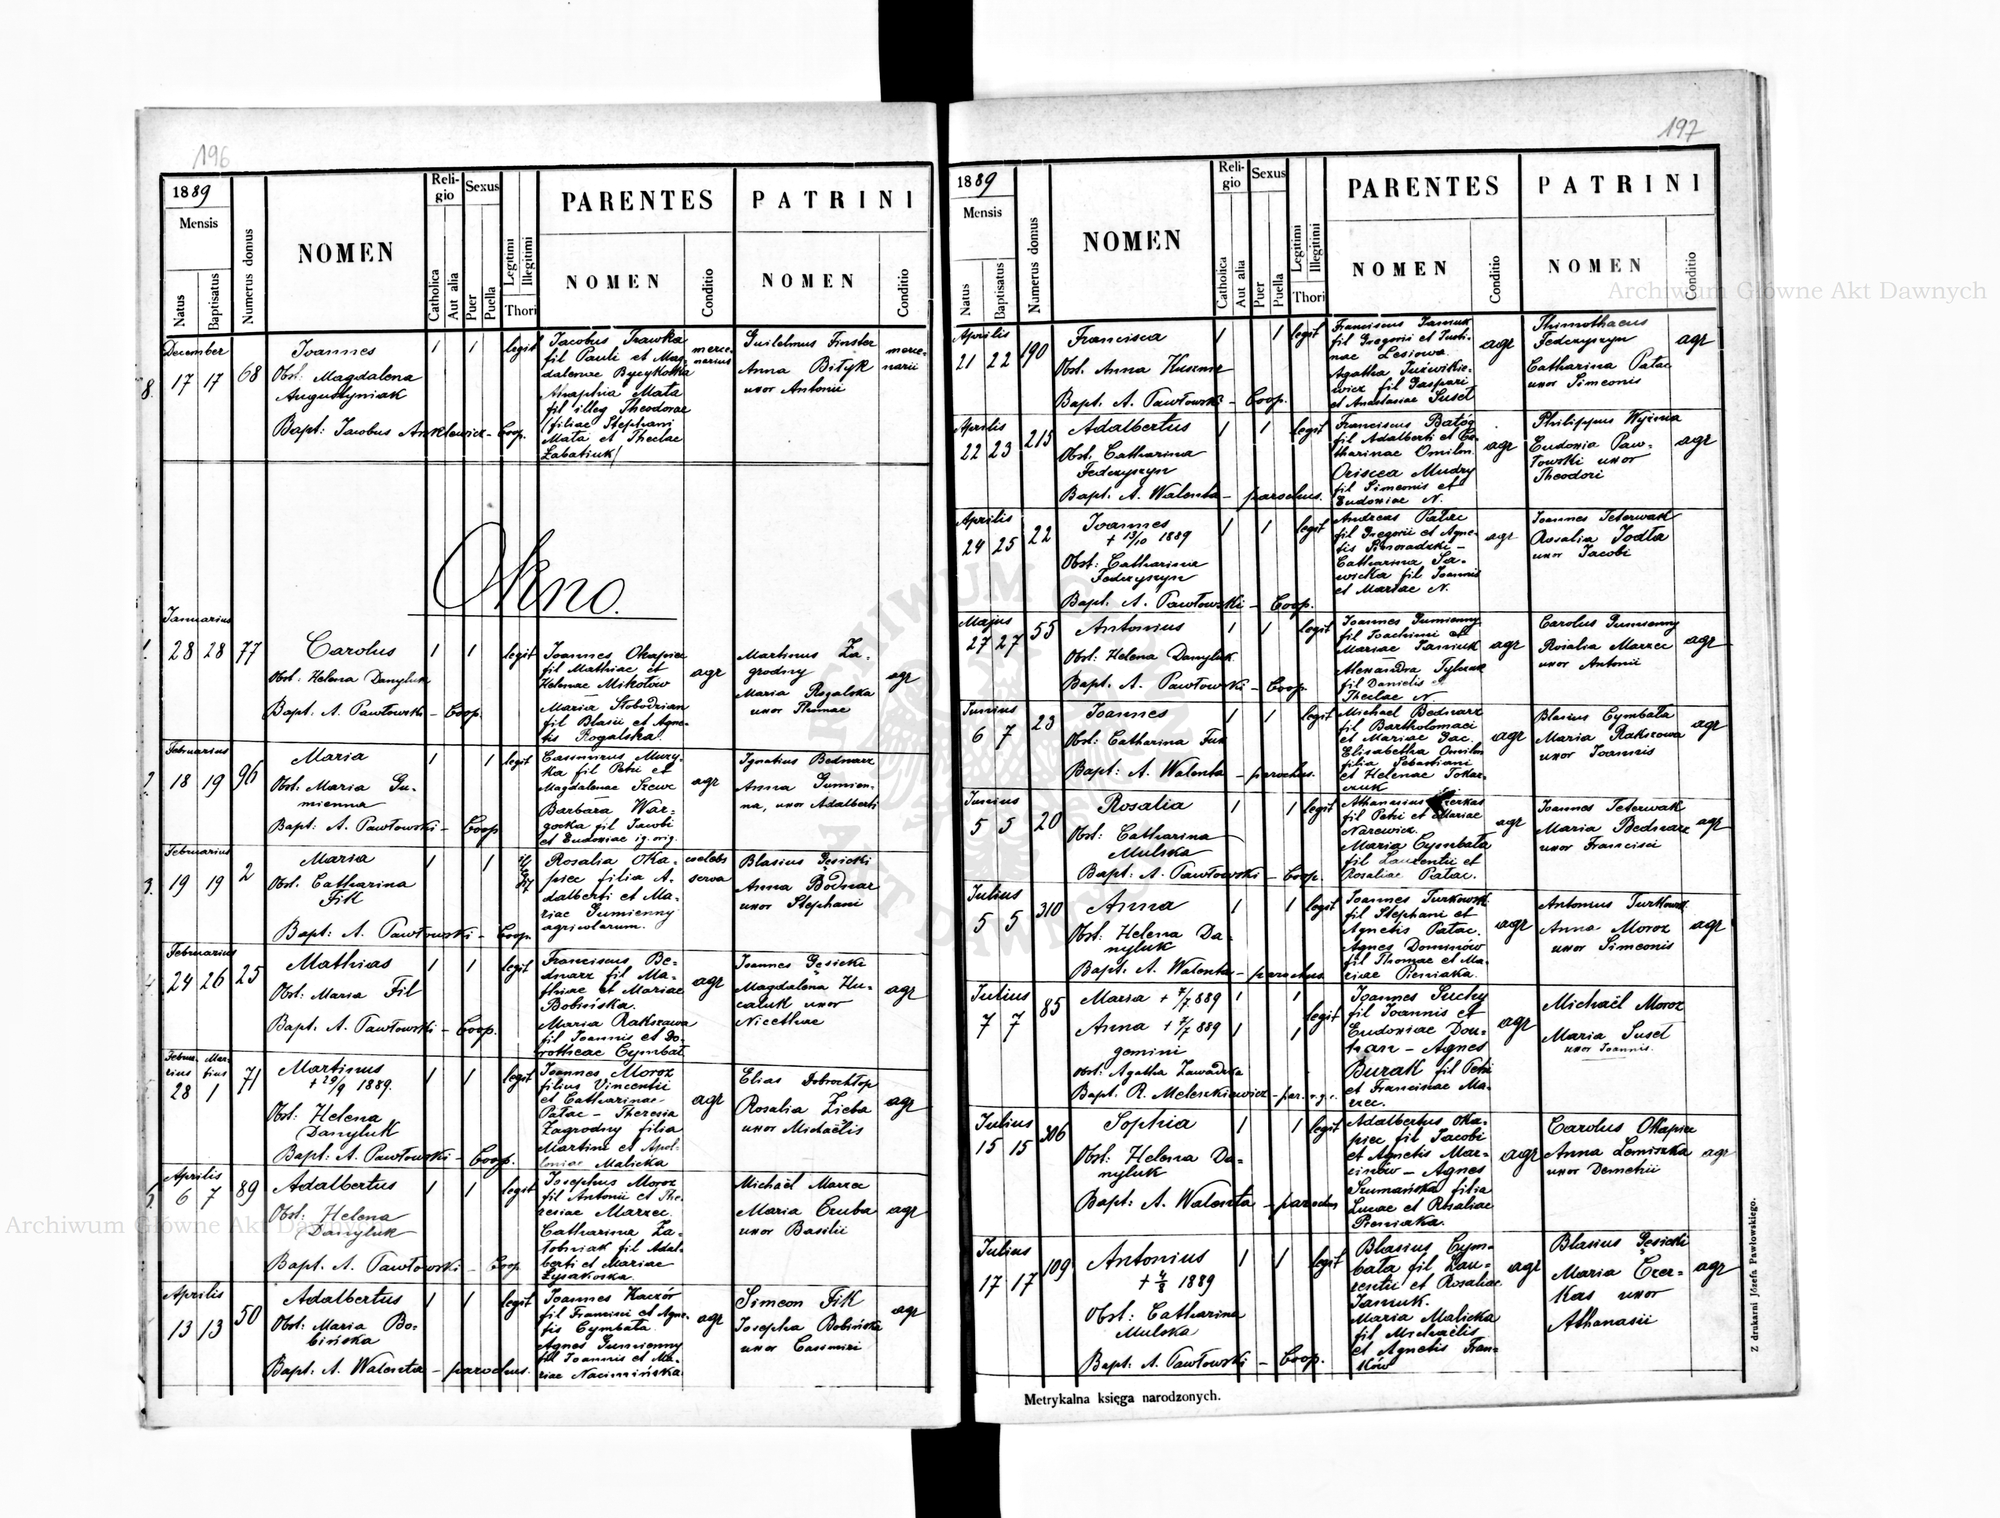 196
1889
Mensis
Natus
Baptisatus
Numerus domus
NOMEN
Religio
Catholica
Aut alia
Sexus
Puer
Puella
Legitimi
Illegitimi
Thori
PARENTES
NOMEN
Conditio
PATRINI
NOMEN
Conditio
8.
December
17 17 68
Joannes
Obst: Magdalena
Augustyniak
Bapt: Jacobus Anklewicz - Coop.
1 1 legit
Jacobus Trawka
fil Pauli et Mag
dalenae Byczykowka
Anaphia Mata
fil illeg Theodorae
(filiae Stephani
Mata et Theclae
Łabatiuk)
merce-
narius
Guilelmus Finster
Anna Bityk
uxor Antonii
merce-
narii
Okno.
1.
Januarius
28 28 77
Carolus
Obst: Helena Danyluk
Bapt. A. Pawłowski - Coop.
1 1 legit
Joannes Okapiec
fil Mathiae et
Helenae Mikołow
Maria Słobodzian
fil Blasii et Agne-
tis Rogalska.
agr
Martinus Za-
grodny
Maria Rogalska
uxor Thomae
agr
2.
Februarius
18 19 96
Maria
Obst: Maria Gu-
mienna
Bapt: A. Pawłowski - Coop
1 1 legit
Casimirus Muzy-
ka fil Petri et
Magdalenae Szewc
Barbara War-
gocka fil Jacobi
et Eudoxiae ig. orig.
agr
Ignatius Bednarz
Anna Gumien-
na, uxor Adalberti
3.
Februarius
19 19 2
Maria
Obst. Catharina
Fik
Bapt: A. Pawłowski - Coop.
1 1
Rosalia Oka-
piec filia A-
dalberti et Ma-
riae Gumienny
agricolarum.
coelebs
serva
Blasius Gęsicki
Anna Bodnar
uxor Stephani
4.
Februarius
24 26 25
Mathias
Obst: Maria Fil
Bapt: A. Pawłowski - Coop.
1 1 legit
Franciscus Be-
dnarz fil Ma-
thiae et Mariae
Bobińska.
Maria Rakszawa
fil Joannis et Do-
rotheae Cymbał
agr
Joannes Gęsicki
Magdalena Hu-
caluk uxor
Nicethae
agr
Februa- Mar-
rius tius
28 1 71
Martinus
+ 29/9 1889.
Obst: Helena
Danyluk
Bapt: A. Pawłowski - Coop.
1 1 legit
Joannes Moroz
filius Vincentii
et Catharinae
Pałac - Theresia
Zagrodny filia
Martini et Apol-
loniae Malicka
agr
Elias Dobrochłop
Rosalia Zięba
uxor Michaëlis
agr
5.
Aprilis
6 7 89
Adalbertus
Obst: Helena
Danyluk
Bapt. A. Pawłowski - Coop
1 1 legit
Josephus Moroz
fil Antonii et The-
resiae Marzec.
Catharina Za-
łobniak fil Adal-
berti et Mariae
Łysakoska.
Michaël Marzec
Maria Czuba
uxor Basilii
agr
Aprilis
13 13 50
Adalbertus
Obst: Maria Bo-
bińska
Bapt. A. Walenta - parochus.
1 1 legit
Joannes Kaczór
fil Francisci et Agne-
tis Cymbała.
Agnes Gumienny
fil Joannis et Ma-
riae Naciminska
agr
Simeon Fik
Josepha Bobińska
uxor Casimiri
agr
197
1889
Mensis
Natus
Baptisatus
Numerus domus
NOMEN
Religio
Catholica
Aut alia
Sexus
Puer
Puella
Legitimi
Illegitimi
Thori
PARENTES
NOMEN
Conditio
PATRINI
NOMEN
Conditio
Aprilis
21 22 190
Francisca
Obst. Anna Kusznir
Bapt: A. Pawłowski - Coop.
1 1 legit
Franciscus Janiuk
fil Gregorii et Justi-
nae Lesiowa.
Agatha Juzwikie-
wicz fil Gaspari
et Anastasiae Suset
agr
Thimothaeus
Fedczyszyn
Catharina Pałac
uxor Simeonis
agr
Aprilis
22 23 215
Adalbertus
Obst. Catharina
Fedczyszyn
Bapt. A. Walenta - parochus.
1 1 legit
Franciscus Batóg
fil Adalberti et Ca-
tharinae Omilon
Oriscea Mudry
fil Simeonis et
Eudoxiae N.
agr
Philippus Wyżina
Eudoxia Paw-
łowski uxor
Theodori
agr
Aprilis
24 25 22
Joannes
+ 13/10 1889
Obst: Catharina
Fedczyszyn
Bapt. A. Pawłowski - Coop.
1 1 legit
Andreas Pałac
fil Gregorii et Agne-
tis Sinoradzki -
Catharina Sa-
wicka fil Joannis
et Mariae N.
agr
Joannes Teterwak
Rosalia Jodła
uxor Jacobi
Majus
27 27 55
Antonius
Obst: Helena Danyluk
Bapt: A. Pawłowski - Coop
1 1 legit
Joannes Gumienny
fil Joachimi et
Mariae Janiuk
Alexandra Tylczuk
fil Danielis et
Theclae N
agr
Carolus Gumienny
Rosalia Marzec
uxor Antonii
agr
Junius
6 7 23
Joannes
Obst: Catharina Fuk
Bapt: A. Walenta - parochus.
1 1 legit
Michael Bednarz
fil Bartholomaei
et Mariae Gac.
Elisabetha Omilon
filia Sebastiani
et Helenae Tokar-
czuk
agr
Blasius Cymbała
Maria Rakszowa
uxor Joannis
agr
Junius
5 5 20
Rosalia
Obst: Catharina
Mulska
Bapt: A. Pawłowski - Coop.
1 1 legit
Athanasius Czerkas
fil Petri et Mariae
Narewicz.
Maria Cymbała
fil Laurentii et
Rosaliae Pałac.
agr
Joannes Teterwak
Maria Bednarz
uxor Francisci
agr
Julius
5 5 310
Anna
Obst: Helena Da-
nyluk
Bapt: A. Walenta - parochus
1 1 legit
Joannes Turkowski
fil Stephani et
Agnetis Pałac.
Agnes Dominów
fil Thomae et Ma-
riae Pieniaka.
agr
Antonius Turkowski
Anna Moroz
uxor Simeonis
agr
Julius
7 7 85
Maria + 7/7 889
Anna + 7/7 889
gemini
Obst: Agatha Zawadzka
Bapt. R. Meleszkiewicz - par. r. g. c.
1 1
1 1
legit
Joannes Suchy
fil Joannis et
Eudoxiae Don-
tran - Agnes
Burak fil Petri
et Franciscae Ma-
rzec.
agr
Michaël Moroz
Maria Suset
uxor Joannis.
Julius
15 15 306
Sophia
Obst: Helena Da-
nyluk
Bapt: A. Walenta - parochus
1 1 legit
Adalbertus Oka-
piec fil Jacobi
et Agnetis Mar-
cinów - Agnes
Szumańska filia
Lucae et Rosaliae
Pieniaka.
agr
Carolus Okapiec
Anna Lemiszka
uxor Demetrii
agr
Julius
17 17 109
Antonius
+ 4/8 1889
Obst: Catharina
Mulska
Bapt: A. Pawłowski - Coop.
1 1 legit
Blasius Cym-
bała fil Lau-
rentii et Rosaliae
Janiuk.
Maria Malicka
fil Michaëlis
et Agnetis Fran-
ków
agr
Blasius Gęsicki
Maria Czer-
kas uxor
Athanasii
agr
Metrykalna księga narodzonych.
Z drukarni Józefa Pawłowskiego.
Archiwum Główne Akt Dawnych
Archiwum Główne Akt Dawnych